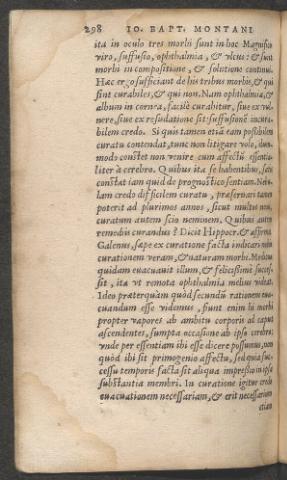 298 IO. BAPT. MONTANI
ita in oculo tres morbi sunt in hoc Magnifico
viro, suffusio, ophthalmia, & vlcus: & sunt
morbi in compositione, & solutione continui.
Hæc ergo sufficiant de his tribus morbis, & qui
sint curabiles, & qui non. Nam ophthalmia, &
album in cornea, facilè curabitur, siue ex vul
nere, siue ex resudatione sit: suffusionē incura
bilem credo. Si qui tamen etiā eam possibilem
curatu contendat, tunc non litigare volo, dum
modo constet non venire cum affectū essentia
liter à cerebro. Quibus ita se habentibus, satis
constat iam quid de prognostico sentiam. Nebu
lam credo difficilem curatu, præseruari tamen
poterit ad plurimos annos, sicut multos noui,
curatum autem scio neminem. Quibus autem
remedijs curandus? Dicit Hippocr. & affirmat
Galenus, sæpe ex curatione facta indicari
curationem veram, & naturam morbi. Medicus
quidam euacuauit illum, & felicissimè succes
sit, ita vt remota ophthalmia melius videat.
Ideo præterquàm quòd secundū rationem eua
cuandum esse videmus, fiunt enim hi morbi
propter vapores ab ambitu corporis ad caput
ascendentes, sumpta occasione ab ipso cerebro:
vnde per essentiam ibi esse dicere possumus, non
quòd ibi sit primogenio affectu, sed quia suc
cessu temporis facta sit aliqua impressio in ipsa
substantia membri. In curatione igitur credo
euacuationem necessariam, & erit necessarium
etiam